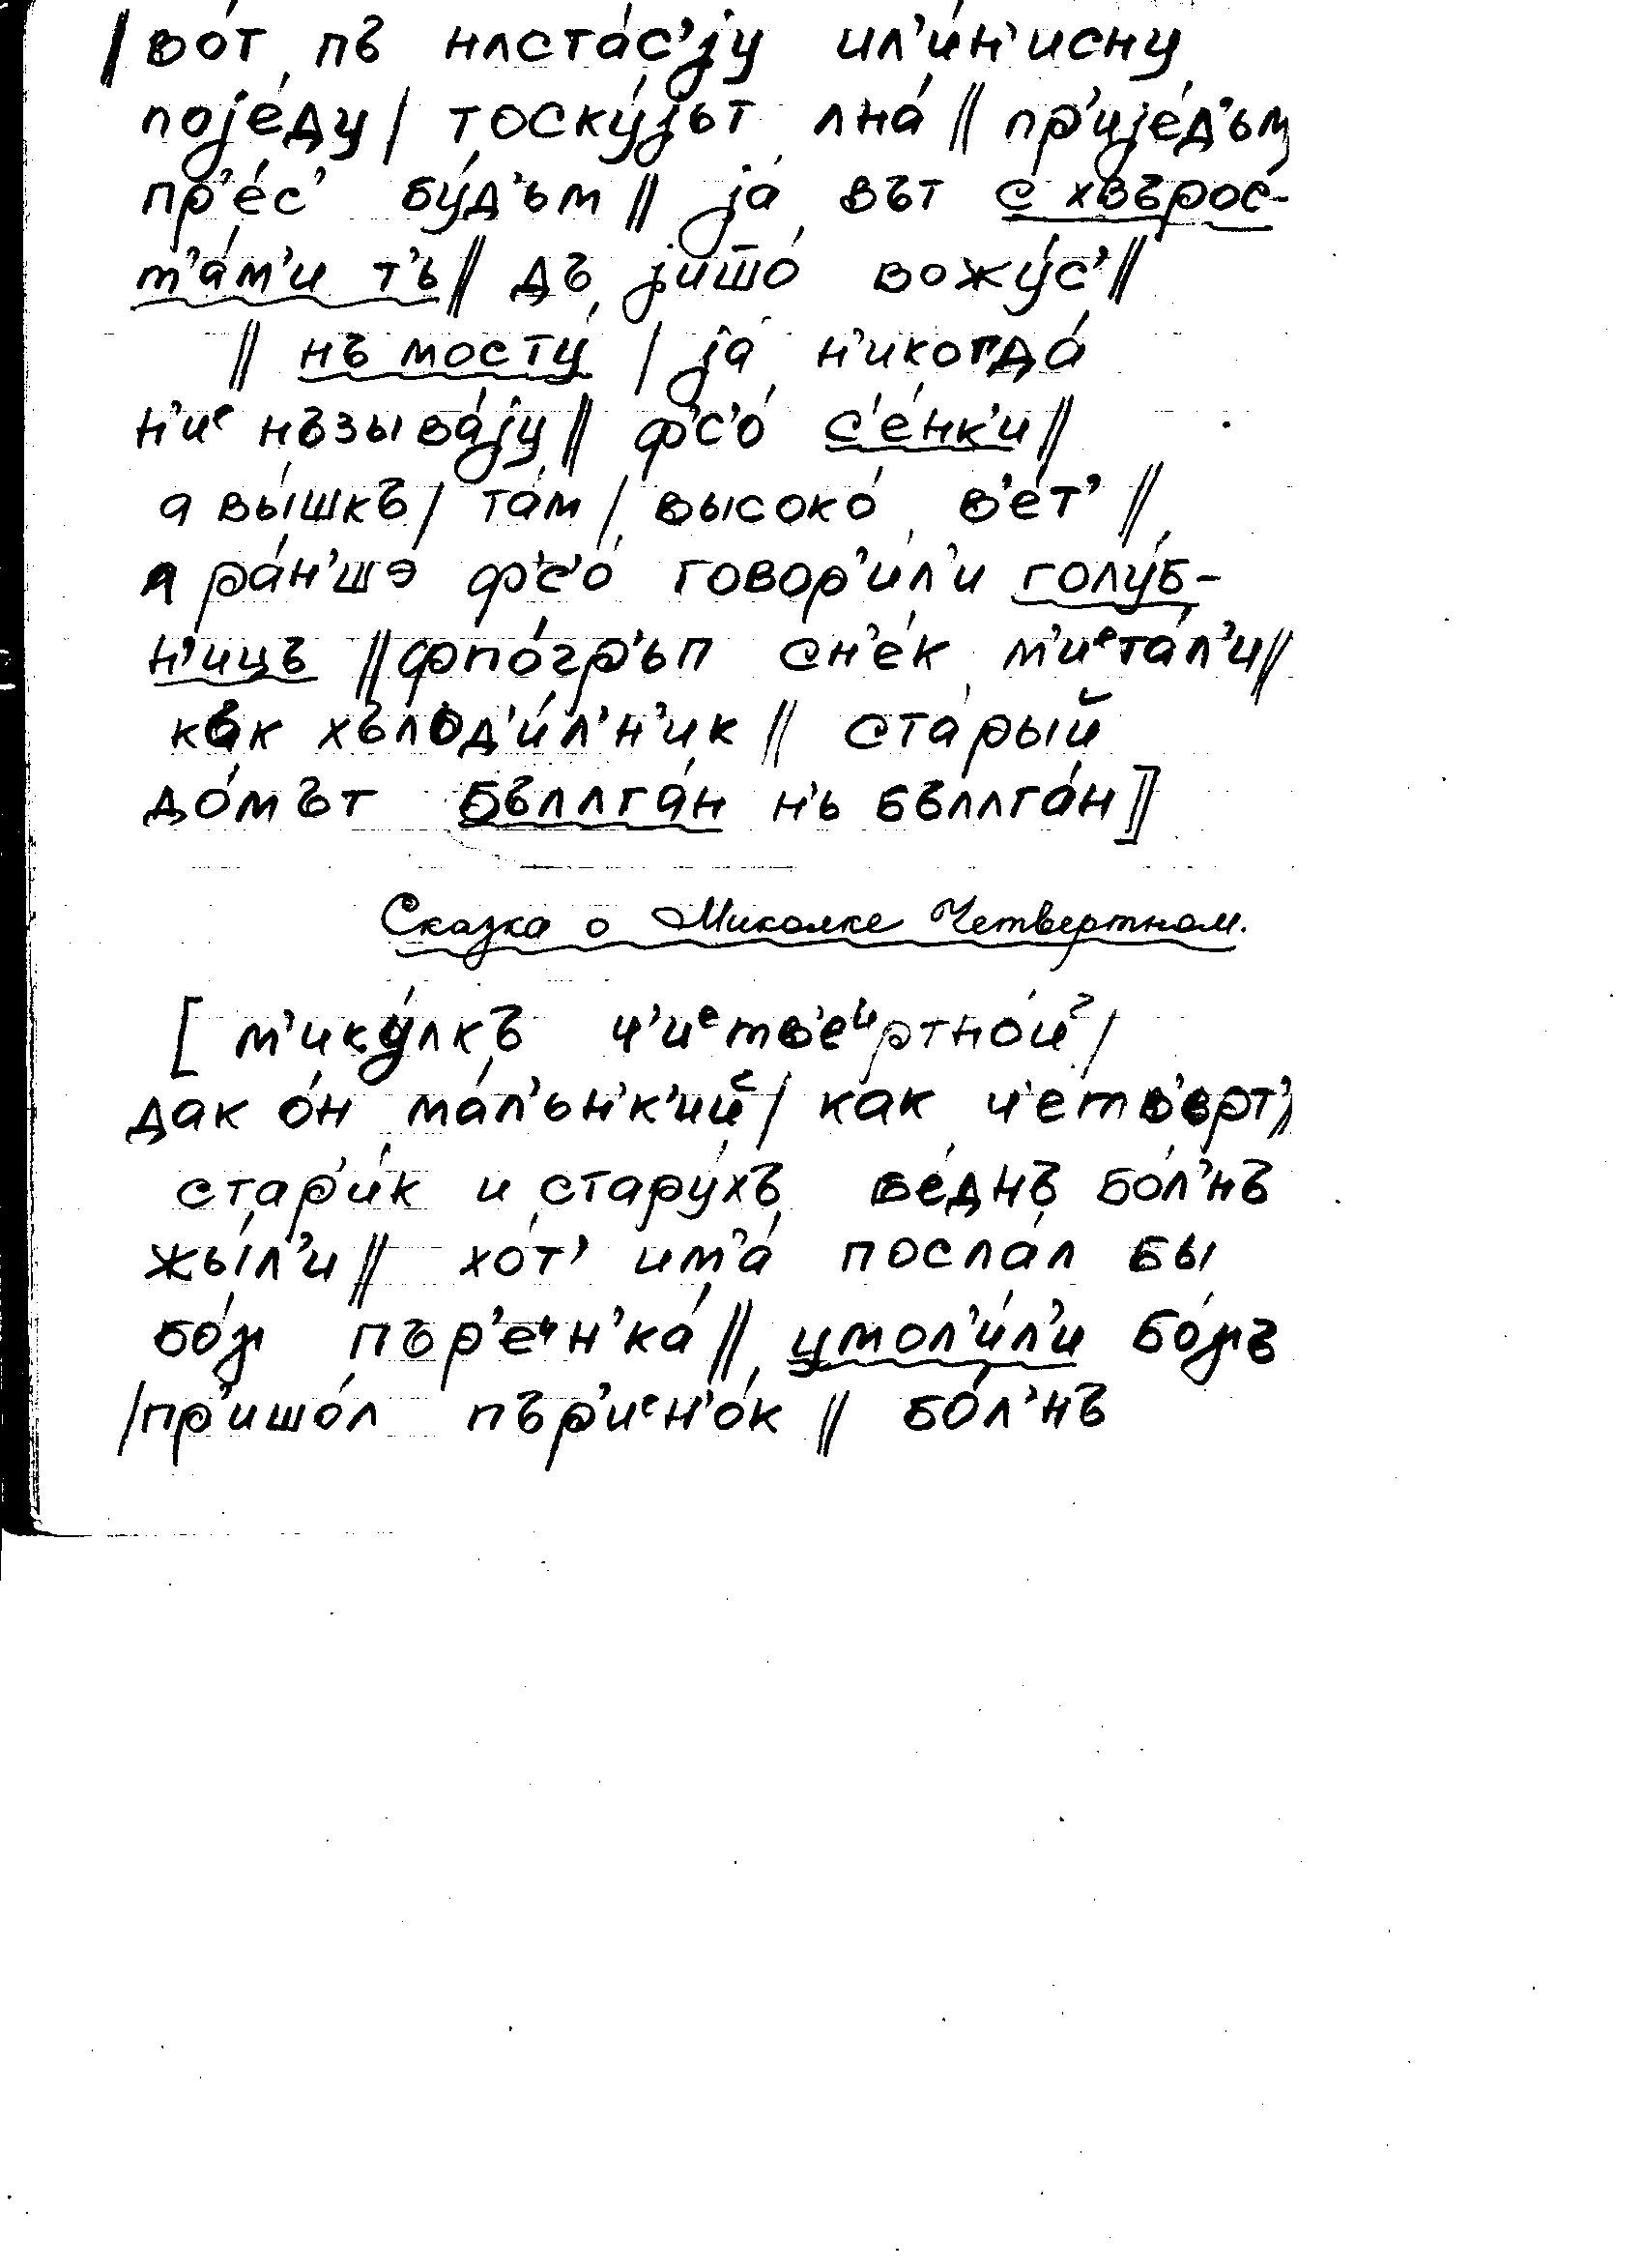 | во́т пъ нʌста́с'jу ил'и́н'исну
поjе́ду / тоску́jьт ʌна́ // пр'иjе́д'ьм
пр'е́с' бу́д'ьм // jа́ вът с хвърос-
т'а́м'и т'ь // дъ jишо́ вожу́с' //
// нъ мосту́ / jа н'икогда́
н'иᵉ нъзыва́jу // ф'с'о́ с'е́нк'и //
а вы́шкъ / та́м / высоко́ в'е́т' //
а ра́н'шэ ф'с'о́ говор'и́л'и голу́б-
н'ицъ // фпо́гр'ьп сн'е́к м'иᵉта́л'и //
как хълод'и́л'н'ик // ста́рый
до́мът бълʌга́н н'ь бълʌга́н ]
Сказка о Миколке Четвертном.
[ м'ику́лкъ ч'иᵉтв'еᶦртно́й /
дак о́н ма́л'ьн'к'ий / ка́к ч'е́тв'ьрт' //
стар'и́к и стару́хъ бе́днъ бо́л'нъ
жы́л'и // хо́т' им'а́ посла́л бы
бо́γ пър'еᶦн'ка́ // умол'и́л'и бо́γъ
/ пр'ишо́л пър'иᵉн'о́к // бо́л'нъ